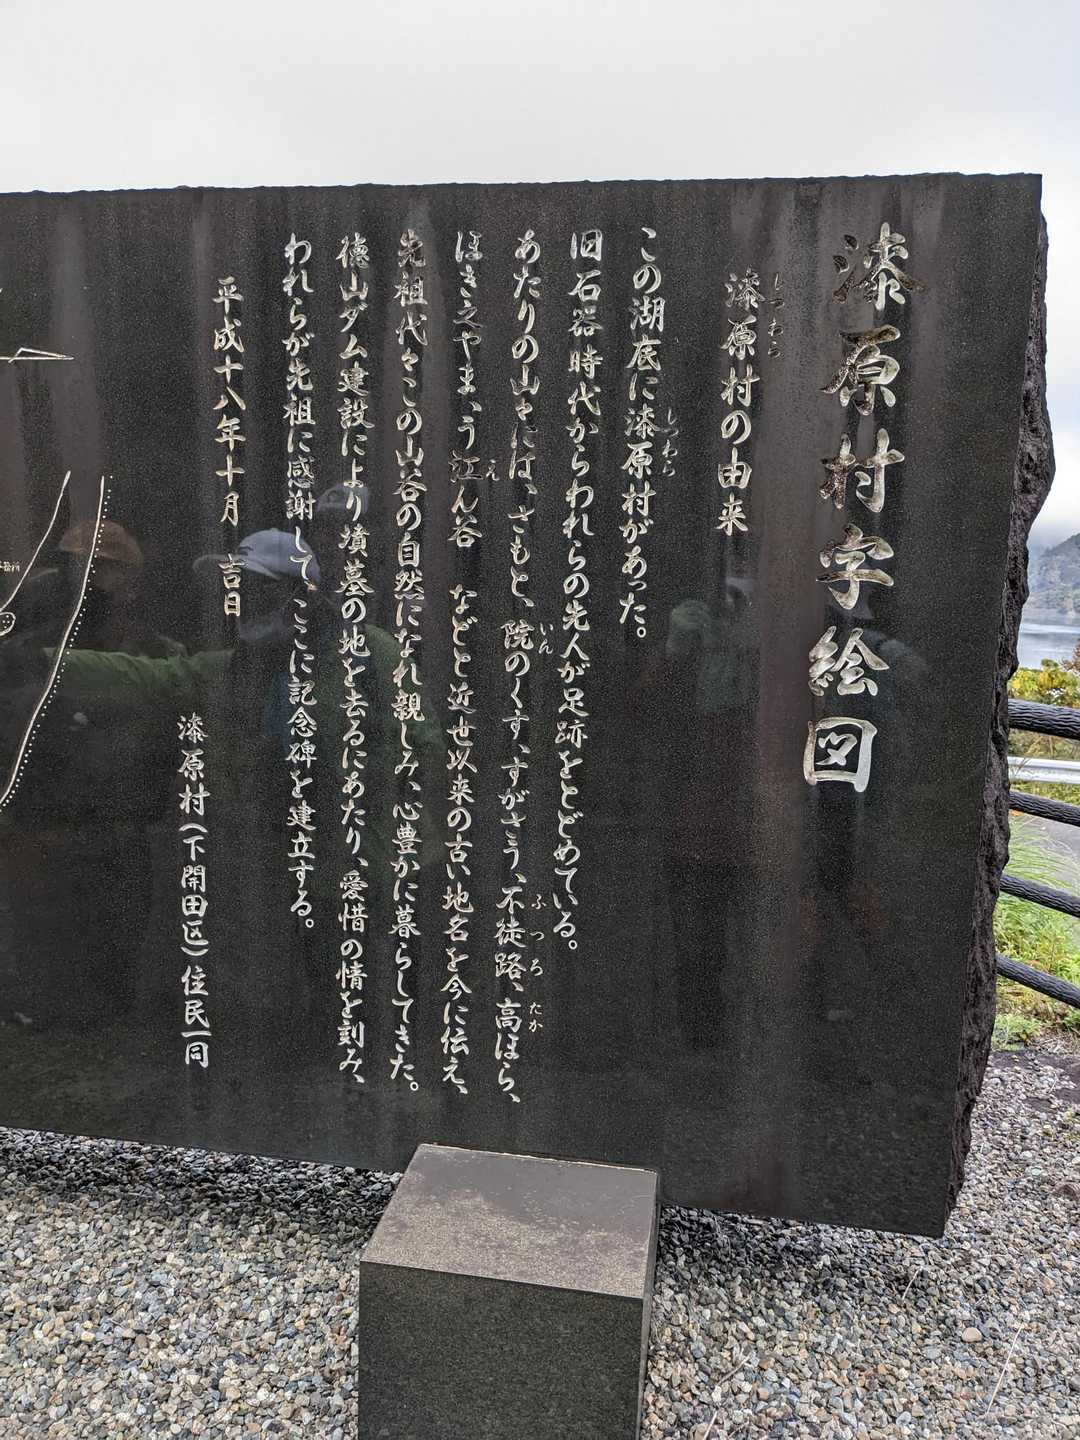 漆原村字絵図
漆原村の由来
しつわら
この湖底に漆原村があった。
しつわら
旧石器時代からわれらの先人が足跡をとどめている。
あたりの山々には、さもと、院のくす、すがさう、不徒路、高ほら、
いん
ふつろ
たか
ほきえやま、う江ん谷 などと近世以来の古い地名を今に伝え、
え
先祖代々この山谷の自然になれ親しみ、心豊かに暮らしてきた。
徳山ダム建設により墳墓の地を去るにあたり、愛惜の情を刻み、
われらが先祖に感謝して、ここに記念碑を建立する。
平成十八年十月 吉日
漆原村(下開田区)住民一同